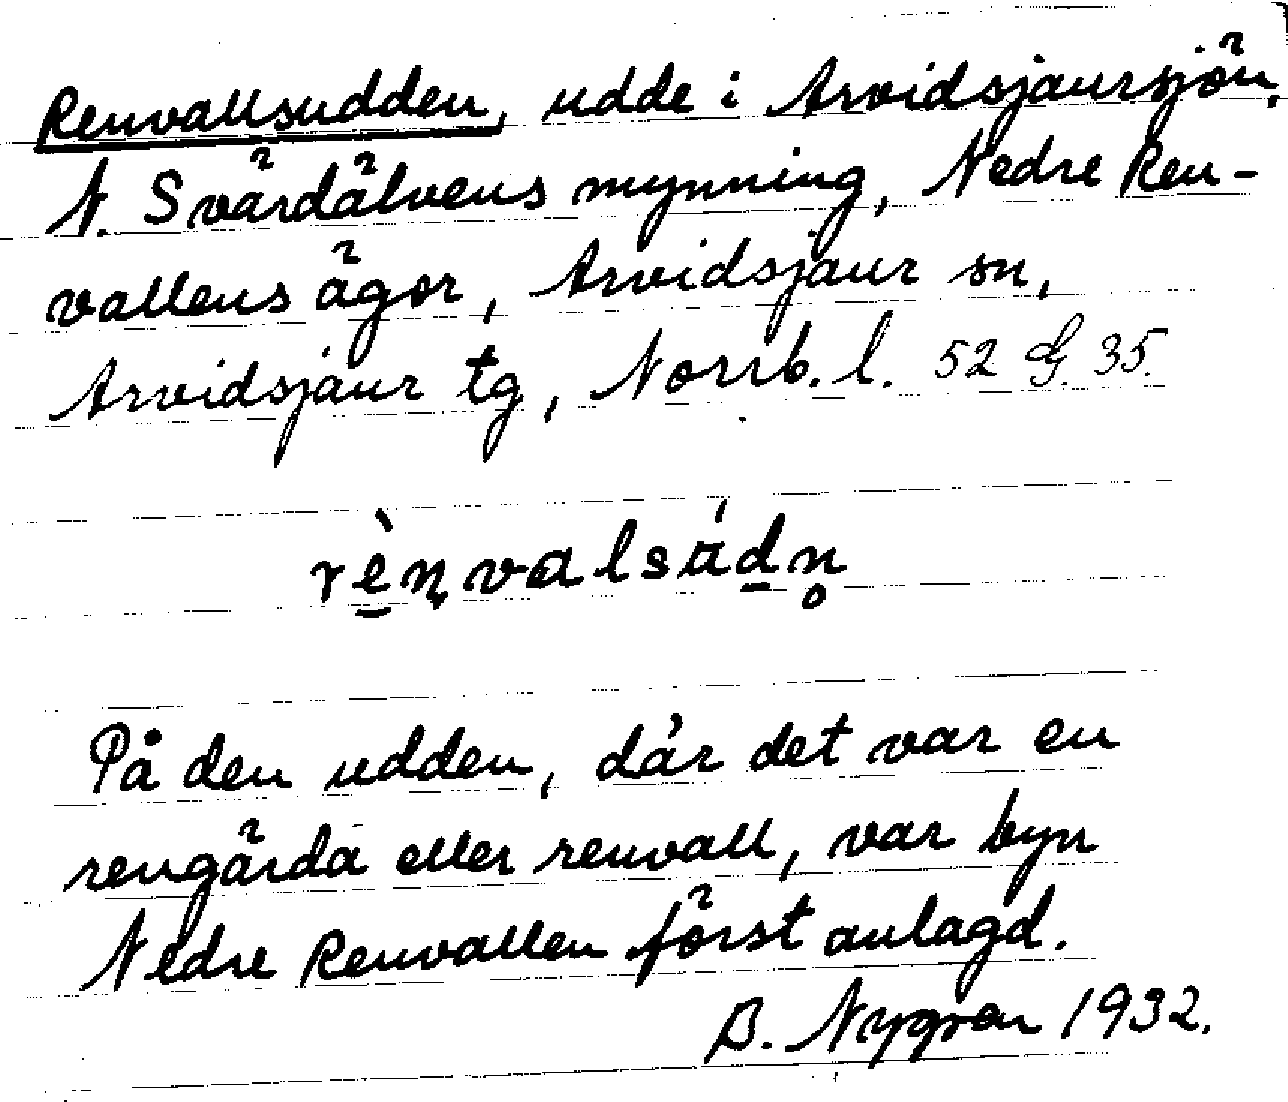 Renvallsudden, udde i Arvidsjaursjön,
N. Svärdälvens mynning, Nedre Ren-
vallens ägor, Arvidsjaur sn,
Arvidsjaur tg, Norrb. l. 52 G. 35.
rènvalsádn̥
På den udden, där det var en
rengärda eller renvall, var byn
Nedre Renvallen först anlagd.
B. Nygren 1932.